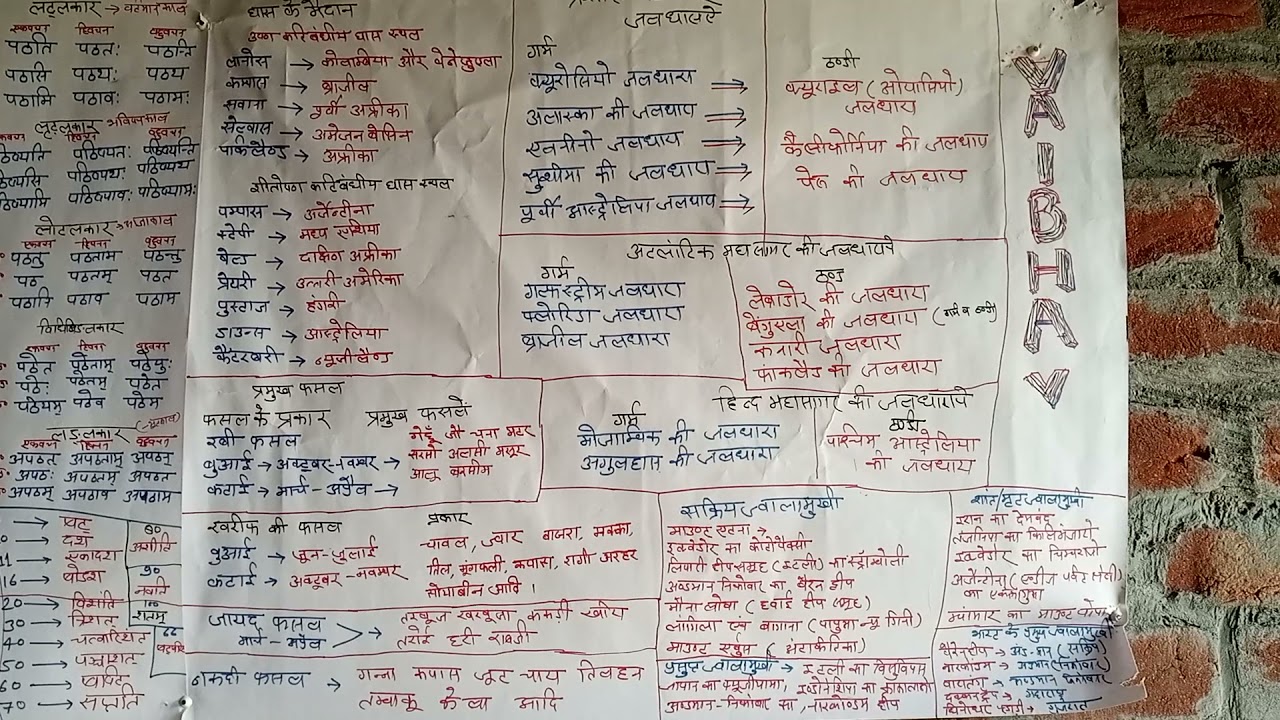 लट्लकार → वर्तमानकाल
एकवचन द्विवचन बहुवचन
पठति पठतः पठन्ति
पठसि पठथः पठथ
पठामि पठावः पठामः
लृट्लकार भविष्यकाल
द्विवचन बहुवचन
पठिष्यतः पठिष्यन्ति
पठिष्यथः पठिष्यथ
पठिष्यावः पठिष्यामः
लोट्लकार → आज्ञाकाल
द्विवचन बहुवचन
पठतु पठताम् पठन्तु
पठ पठतम् पठत
पठानि पठाव पठाम
विधिलिङ्लकार
द्विवचन बहुवचन
पठेत पठेताम् पठेयुः
पठेः पठेतम् पठेत
पठेयम् पठेव पठेम
लङ्लकार (भूतकाल)
एकवचन द्विवचन बहुवचन
अपठत् अपठताम् अपठन्
अपठः अपठतम् अपठत
अपठम् अपठाव अपठाम
दश
एकादश
16 → षोडश
20 → विंशति
30 → त्रिंशत
40 → चत्वारिंशत
50 → पञ्चाशत
60 → षष्टि
70 → सप्तति
80
अशीति
90
नवति
100
शतम्
घास के मैदान
उष्ण कटिबंधीय घास स्थल
लानोस → कोलम्बिया और वेनेजुएला
कम्पास → ब्राजील
सवाना → पूर्वी अफ्रीका
सेल्वास → अमेजन बेसिन
पार्कलैण्ड → अफ्रीका
शीतोष्ण कटिबंधीय घास स्थल
पम्पास → अर्जेन्टीना
स्टेपी → मध्य एशिया
वेल्ड → दक्षिण अफ्रीका
प्रेयरी → उत्तरी अमेरिका
पुस्ताज → हंगरी
डाउन्स → आस्ट्रेलिया
कैंटरबरी → न्यूजीलैण्ड
प्रमुख फसल
फसल के प्रकार प्रमुख फसलें
रबी फसल
वुआई → अक्टूबर-नवम्बर →
कटाई → मार्च - अप्रैल →
गेहूँ जौ चना मटर
सरसो अलसी मसूर
आलू बरसीम
खरीफ की फसल प्रकार
वुआई → जून-जुलाई
कटाई → अक्टूबर-नवम्बर
चावल, ज्वार बाजरा, मक्का,
तिल, मूंगफली, कपास, रागी अरहर
सोयाबीन आदि ।
जायद फसल
मार्च - अप्रैल
तरबूज खरबूजा ककड़ी खीरा
तरोई हरी सब्जी
नकदी फसल → गन्ना कपास जूट चाय तिलहन
तम्बाकू केला आदि
जलधाराऐ
गर्म
क्यूरोसिवो जलधारा ⇒
अलास्का की जलधारा ⇒
एलनीनो जलधारा ⇒
सुशीमा की जलधारा ⇒
पूर्वी आस्ट्रेलिया जलधारा ⇒
ठण्डी
क्यूराइल (ओयाशिवो)
जलधारा
कैलीफोर्निया की जलधारा
पेरू की जलधारा
अटलांटिक महासागर की जलधाराये
गर्म
गल्फस्ट्रीम जलधारा
फ्लोरिडा जलधारा
ब्राजील जलधारा
लेब्राडोर की जलधारा
बेंगुएला की जलधारा (गर्म व ठण्डी)
कनारी जलधारा
फाकलैंड की जलधारा
हिन्द महासागर की जलधाराये
गर्म
मोजाम्बिक की जलधारा
अगुलहास की जलधारा
ठण्डी
पश्चिम आस्ट्रेलिया
की जलधारा
सक्रिय ज्वालामुखी
माउण्ट एटना →
इक्वेडोर का कोटोपैक्सी
लिपारी द्वीप समूह (इटली) का स्ट्राम्बोली
अण्डमान निकोबार का बैरन द्वीप
मौना लोआ (हवाई द्वीप समूह)
लांगिला एवं बागाना (पापुआ न्यू गिनी)
माउण्ट एर्बुश (अंटार्कटिका)
प्रसुप्त ज्वालामुखी → इटली का विसुवियस
जापान का फ्यूजीयामा, इण्डोनेशिया का क्राकाताओ
अण्डमान-निकोबार का, नारकोंडम द्वीप
शांत/मृत ज्वालामुखी
इरान का देमबन्द
तंजानिया का किलिमंजारो
इक्वेडोर का चिम्बराजो
अर्जेन्टीना (एण्डीज पर्वत श्रेणी)
म्यांमार का माउण्ट पोपा
भारत के मुख्य ज्वालामुखी
बैरेन द्वीप →
नारकोंडम → अण्डमान (निकोबार)
बारातांग → अण्डमान निकोबार
दक्कन ट्रैप → महाराष्ट्र
धिनोधर पहाड़ी → गुजरात
VAIBHAV